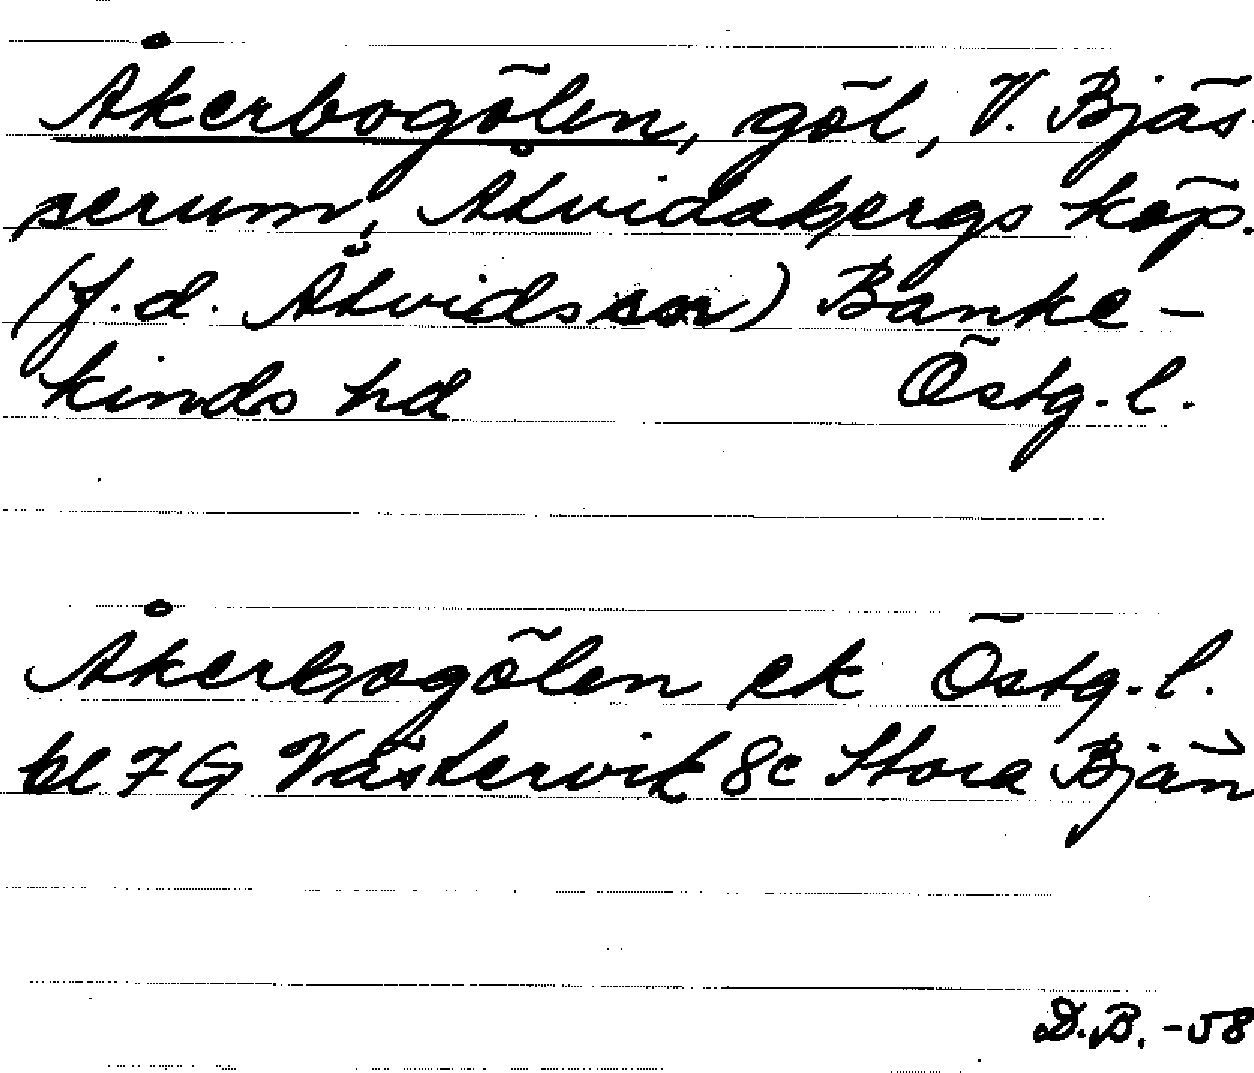 Åkerbogölen, göl, V. Bjäs-
serum, Åtvidabergs köp.
(f.d. Åtvids sn) Banke-
kinds hd Östg. l.
Åkerbogölen ek Östg. l.
bl 7 G Västervik 8c Stora Bjän
D.B. -58